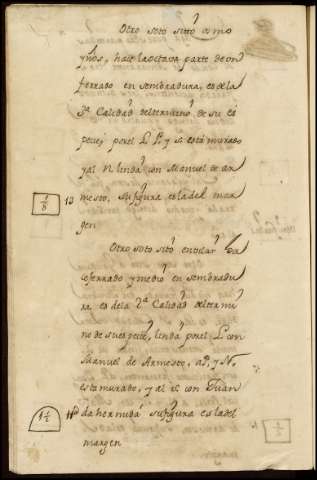 Otro soto sitto como
ynos, hace la octava parte de un
ferrado en sembradura, es dela
3ª Calidad deltermino de su es
pecie; por el L. P. y si esta murado
y al N. linda con Manuel de Ar
mesto, su figura es la del mar
gen
1/8
Otro soto sitto en
ce ferrado y medio en sembradu
ra es dela 2ª Calidad deltermi
no de su especie, linda por el L. con
Manuel de Armesto, al P. y N.
esta murado, y al con Juan
da hermida su figura es la del
margen
1 1/2